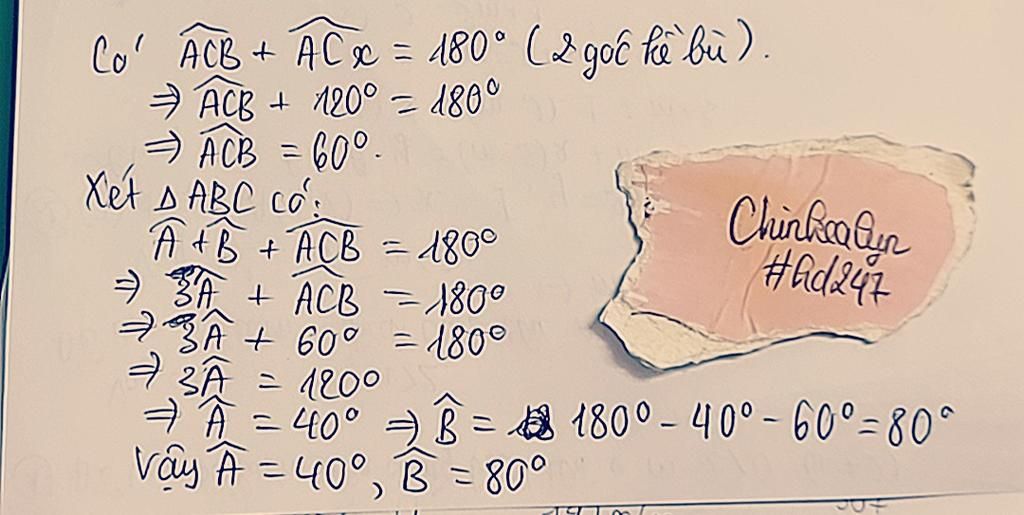 Có ACB + ACx = 180° (2 góc kề bù).
⇒ ACB + 120° = 180°
⇒ ACB = 60°.
Xét Δ ABC có:
A + B + ACB = 180°
⇒ 3A + ACB = 180°
⇒ 3A + 60° = 180°
⇒ 3A = 120°
⇒ A = 40° ⇒ B = 180° - 40° - 60° = 80°
Vậy A = 40°, B = 80°
#Gd247